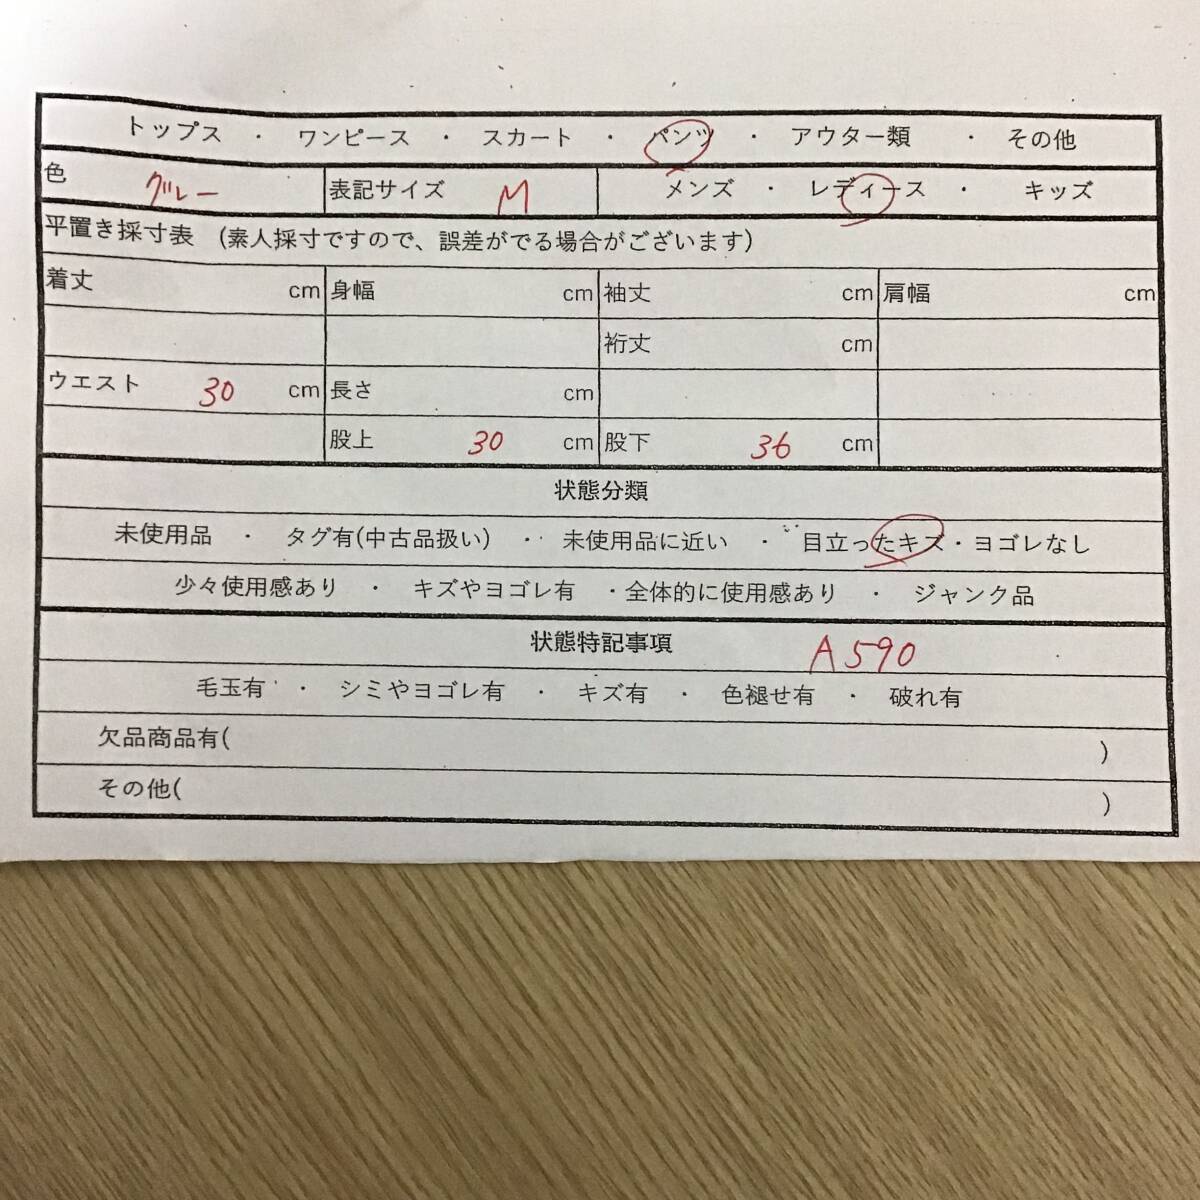 トップス ・ ワンピース ・ スカート ・ パンツ ・ アウター類 ・ その他
色 グレー 表記サイズ M メンズ ・ レディース ・ キッズ
平置き採寸表 (素人採寸ですので、誤差がでる場合がございます)
着丈 cm 身幅 cm 袖丈 cm 肩幅 cm
裄丈 cm
ウエスト 30 cm 長さ cm
股上 30 cm 股下 36 cm
状態分類
未使用品 ・ タグ有(中古品扱い) ・ 未使用品に近い ・ 目立ったキズ・ヨゴレなし
少々使用感あり ・ キズやヨゴレ有 ・全体的に使用感あり ・ ジャンク品
状態特記事項 A590
毛玉有 ・ シミやヨゴレ有 ・ キズ有 ・ 色褪せ有 ・ 破れ有
欠品商品有( )
その他( )